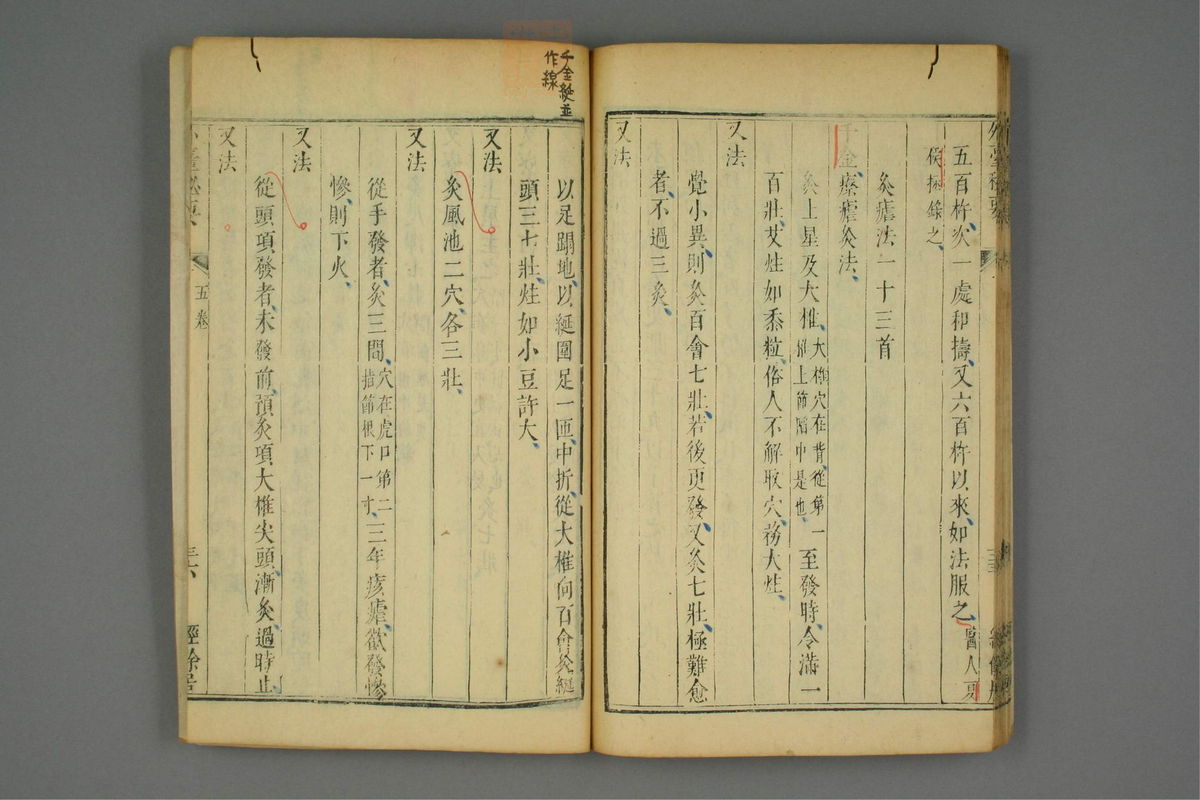 五百杵次一處和擣又六百杵以來如法服之醫人夏
侯拯錄之
灸瘧法一十三首
千金療瘧灸法
灸上星及大椎大椎穴在背從第一椎上節陷中是也至發時令滿一
百壯艾炷如黍粒俗人不解取穴務大炷
又法
覺小異則灸百會七壯若後更發又灸七壯極難愈
者不過三灸
又法
千金綖並
作線
以足蹋地以綖圍足一匝中折從大椎向百會灸綖
頭三七壯炷如小豆許大
又法
灸風池二穴各三壯
又法
從手發者灸三間穴在虎口第二指節根下一寸三年痎瘧欲發慘
慘則下火
又法
從頭項發者未發前預灸項大椎尖頭漸灸過時止
又法
五卷
經餘居